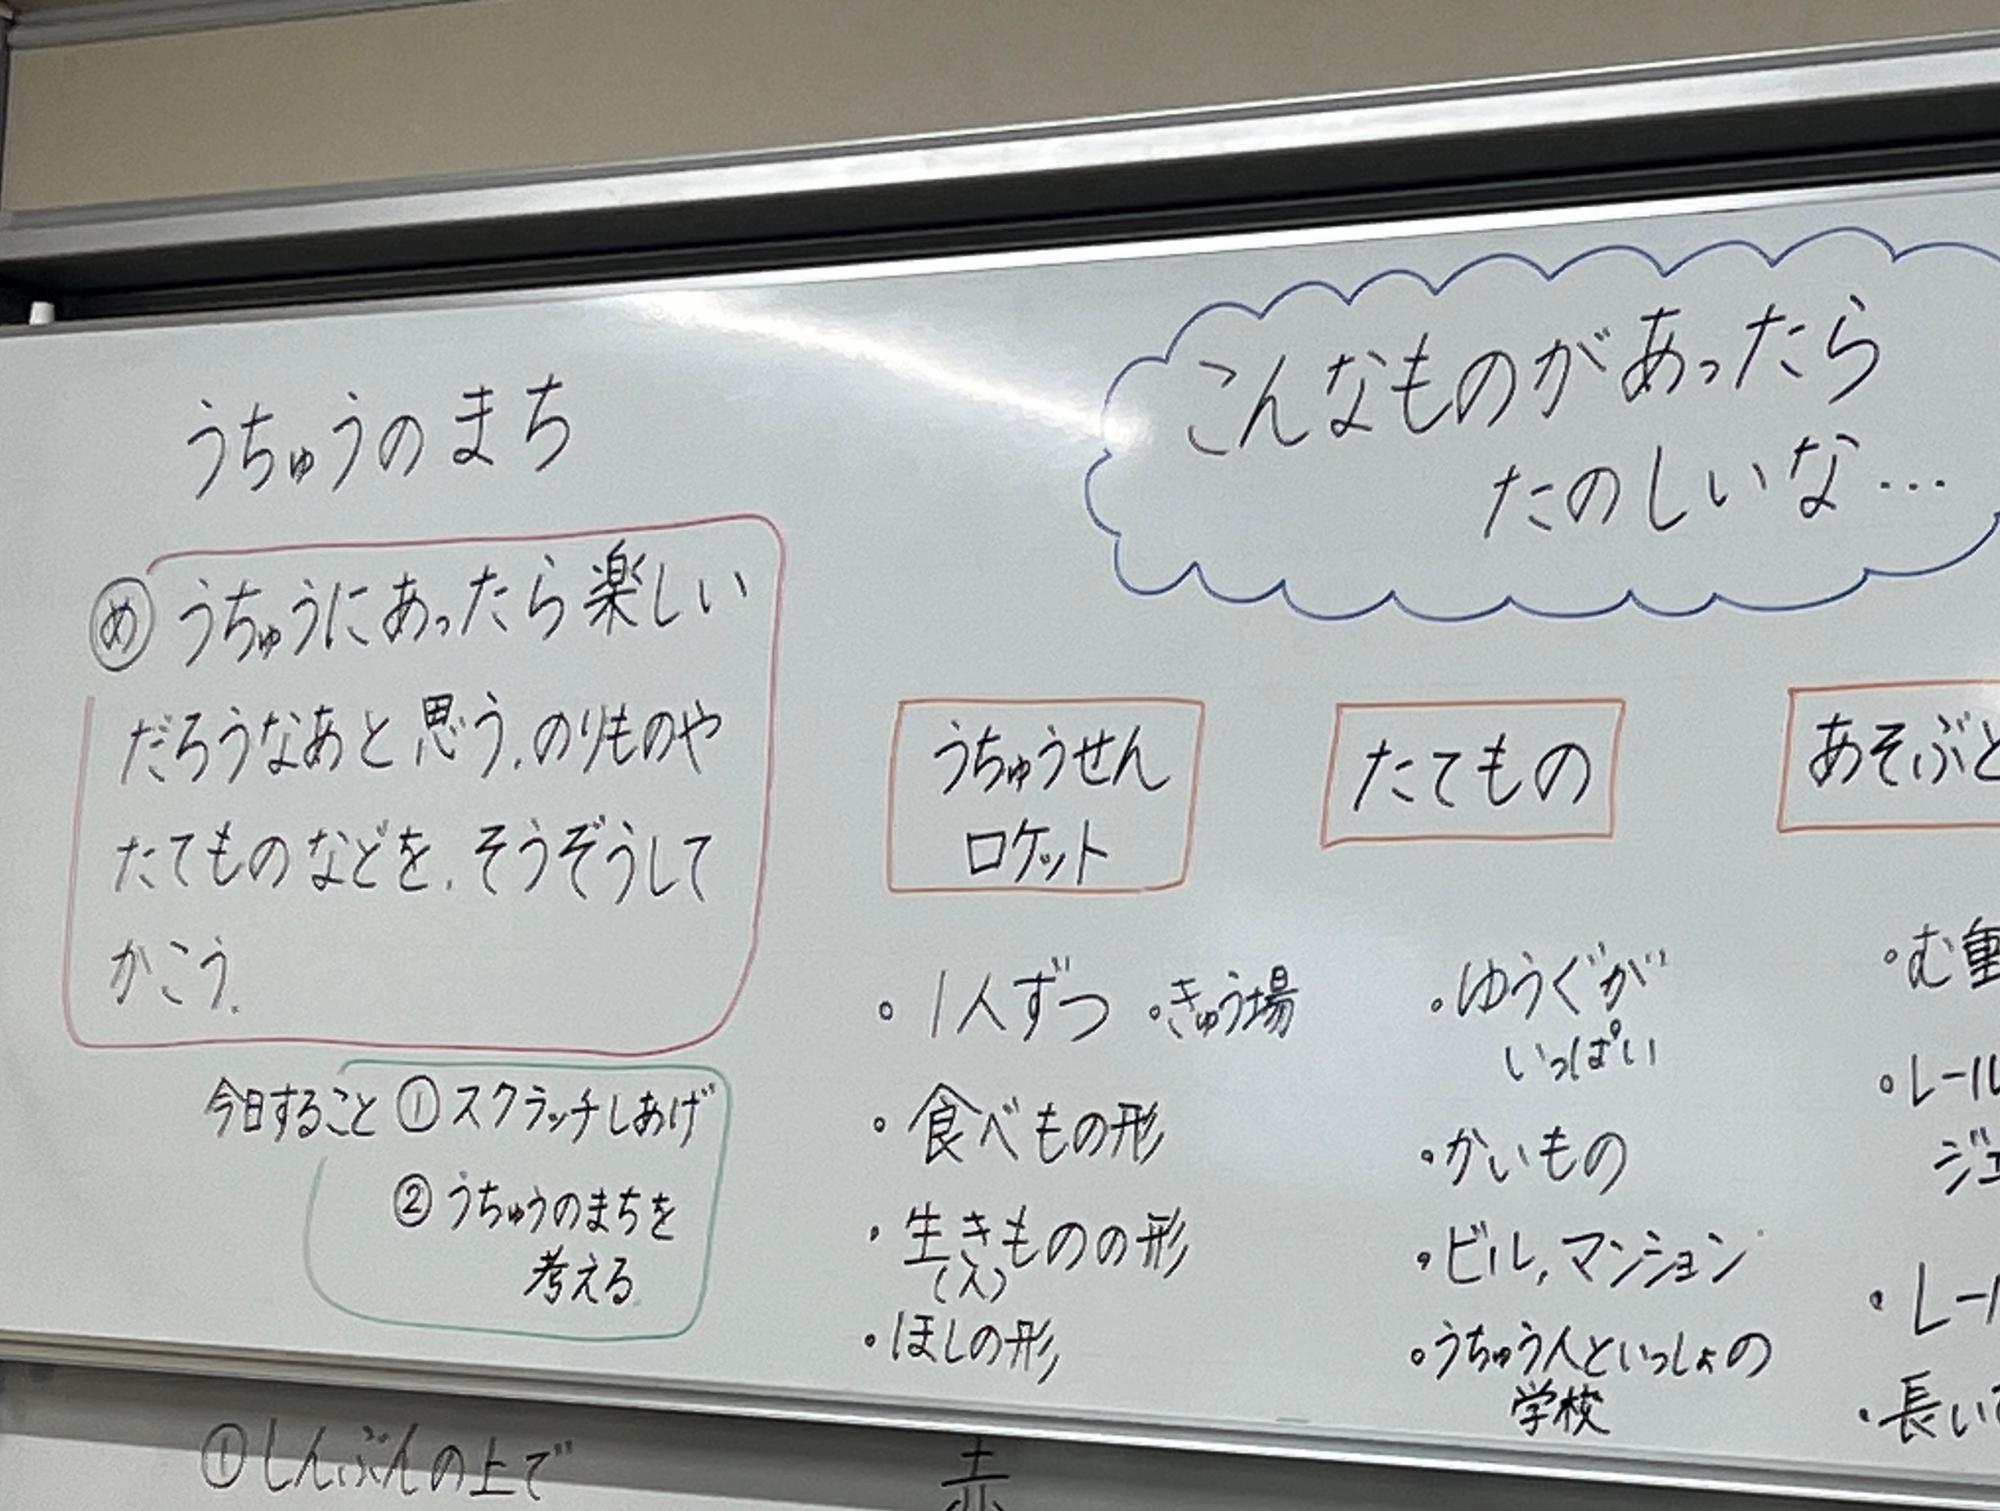 うちゅうのまち
め うちゅうにあったら楽しい
だろうなあと思う、のりものや
たてものなどを、そうぞうして
かこう。
今日すること ①スクラッチしあげ
②うちゅうのまちを
考える
こんなものがあったら
たのしいな…
うちゅうせん
ロケット
・1人ずつ ・きゅう場
・食べもの形
・生きものの形
(人)
・ほしの形
たてもの
・ゆうぐが
いっぱい
・かいもの
・ビル,マンション
・うちゅう人といっしょの
学校
あそぶと
・む重
・レール
ジェ
・レール
・長い
①しんぶんの上で
赤